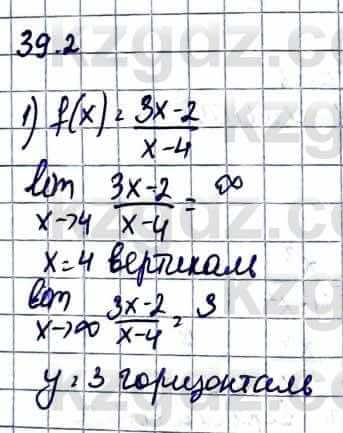 39.2
1) f(x) = \frac{3x-2}{x-4}
lim_{x→4} \frac{3x-2}{x-4} = ∞
x = 4 вертикаль
lim_{x→∞} \frac{3x-2}{x-4} = 3
y = 3 горизонталь
kzgdz.com